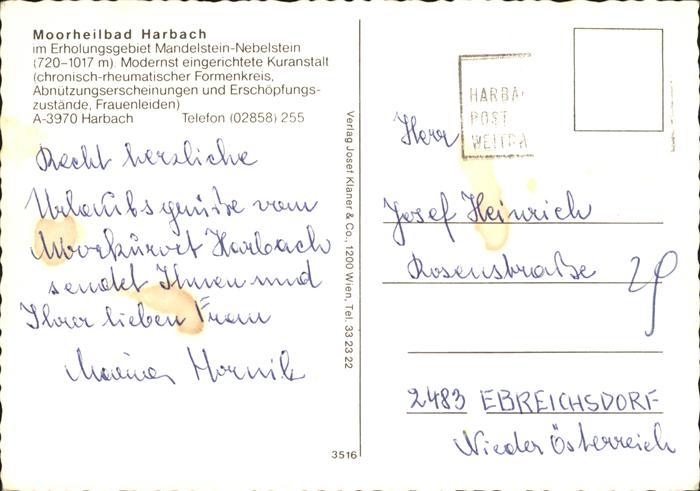 Moorheilbad Harbach
im Erholungsgebiet Mandelstein-Nebelstein
(720–1017 m). Modernst eingerichtete Kuranstalt
(chronisch-rheumatischer Formenkreis,
Abnützungserscheinungen und Erschöpfungs-
zustände, Frauenleiden)
A-3970 Harbach Telefon (02858) 255
Recht herzliche
Urlaubsgrüße vom
Moorkurort Harbach
sendet Ihnen und
Ihrer lieben Frau
Hornik
Verlag Josef Klaner & Co., 1200 Wien, Tel. 33 23 22
3516
HARBA
POST
WEITRA
Herr
Josef Heinrich
Rosenstraße 29
2483 EBREICHSDORF
Nieder Österreich